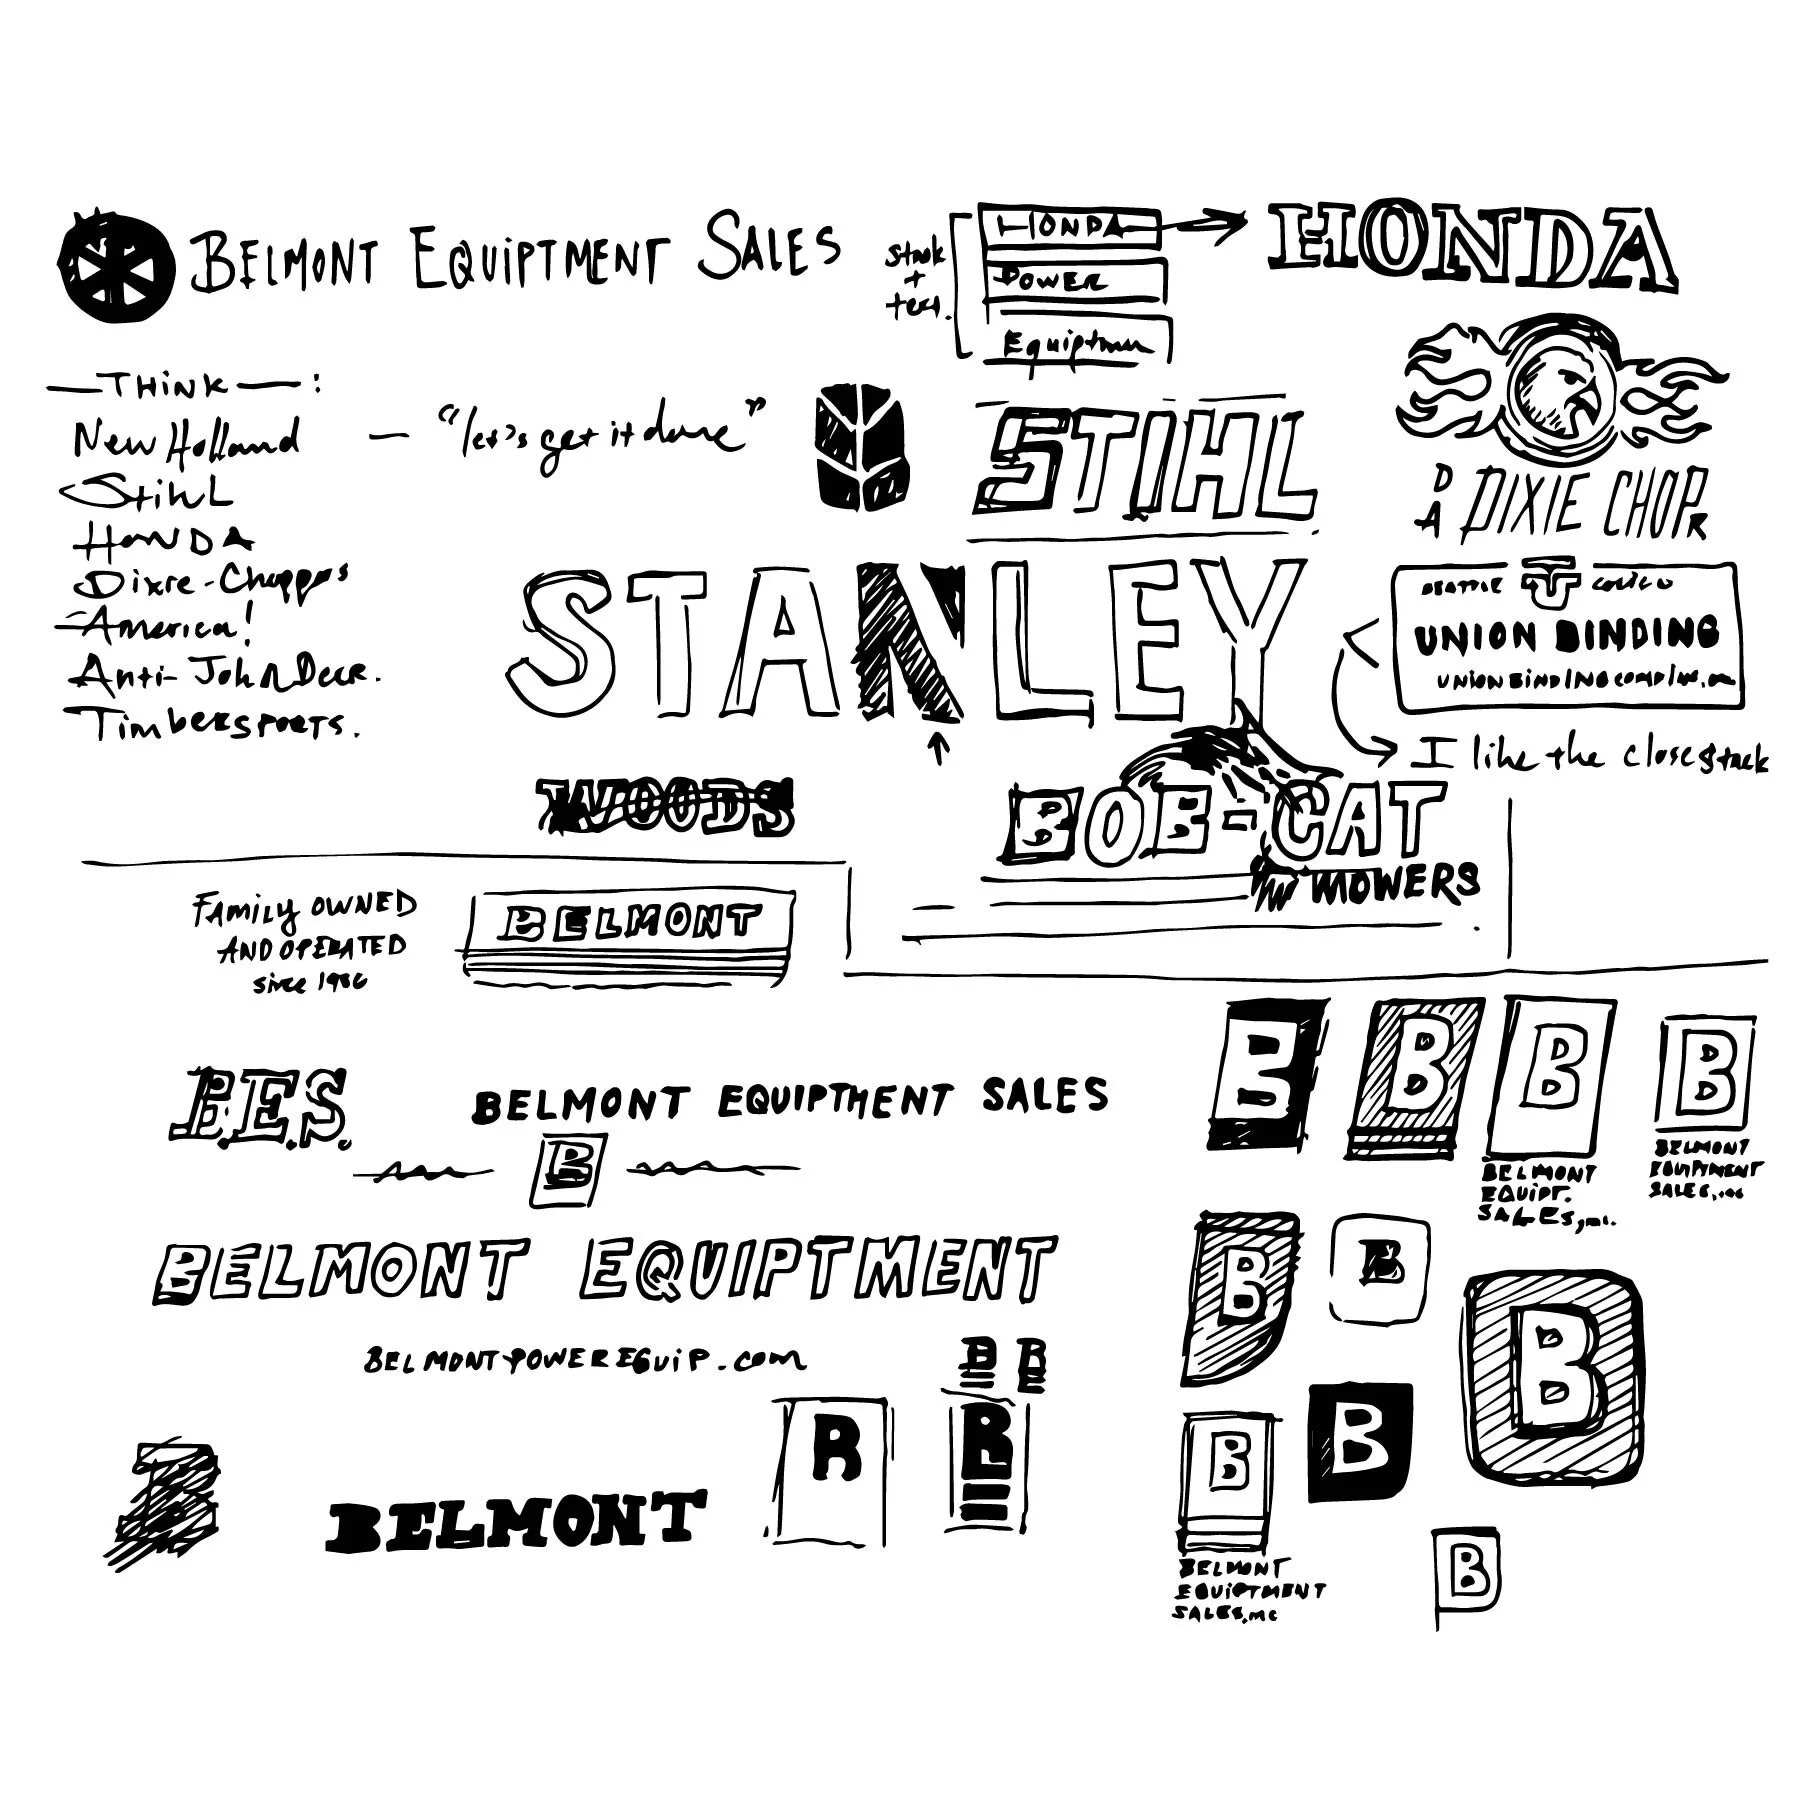 BELMONT EQUIPTMENT SALES
stack
+
text.
HONDA
POWER
Equiptmen
HONDA
—THiNK—:
New Holland — "let's get it done"
StihL
HONDA
Dixie-Choppers
America!
Anti-John Deer.
Timbersports.
STIHL
DA DIXIE CHOPR
STANLEY
SEATTLE
UNION BINDING
I like the close stack
WOODS
BOB-CAT
MOWERS
FAMiLy OWNED
AND OPERATED
since 1986
BELMONT
B.E.S.
BELMONT EQUIPTMENT SALES
B
BELMONT EQUIPTMENT
BELMONTPOWEREQUiP.com
B B
B
BELMONT
R
B
B
B
B
BELMONT
EQUIPT.
SALES, inc.
B
BELMONT
EQUIPTMENT
SALES, inc
B
B
B
B
B
BELMONT
EQUIPTMENT
SALES, inc
B